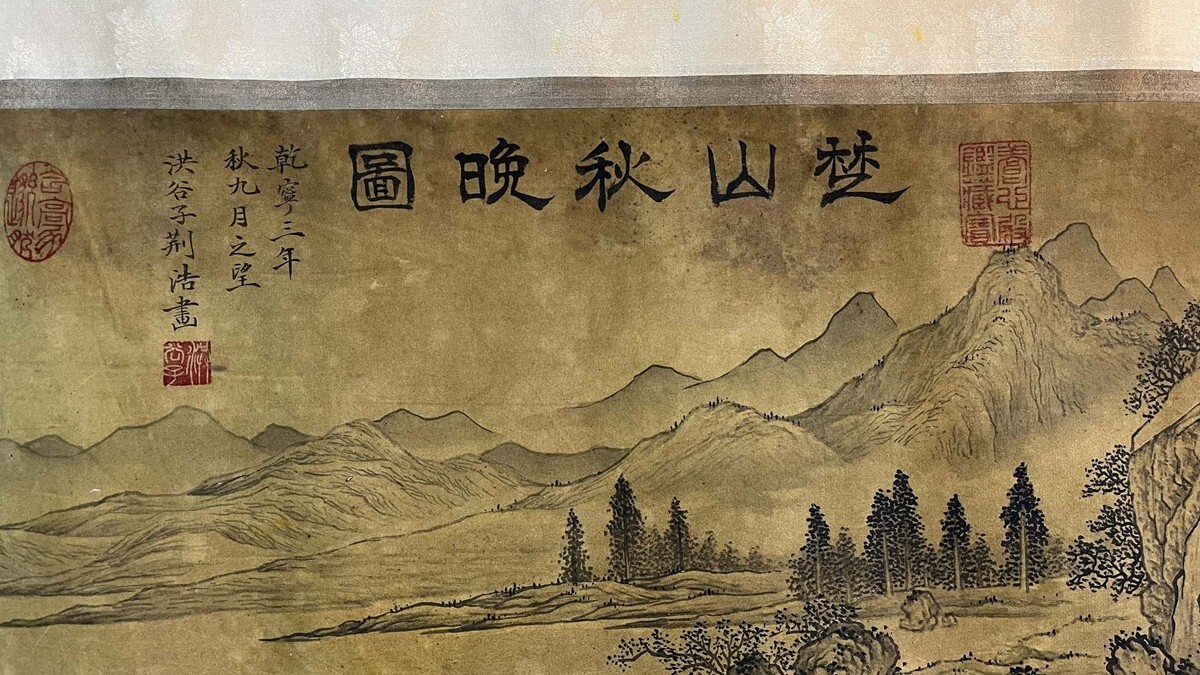 楚山秋晚圖
乾寧三年
秋九月之望
洪谷子荆浩畫
洪谷子